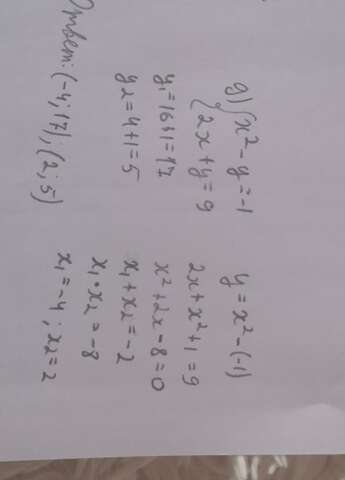 д) { x² - y = -1
2x + y = 9
y = x² - (-1)
2x + x² + 1 = 9
x² + 2x - 8 = 0
x₁ + x₂ = -2
x₁ • x₂ = -8
x₁ = -4 ; x₂ = 2
y₁ = 16+1 = 17
y₂ = 4+1 = 5
Ответ: (-4; 17); (2; 5)